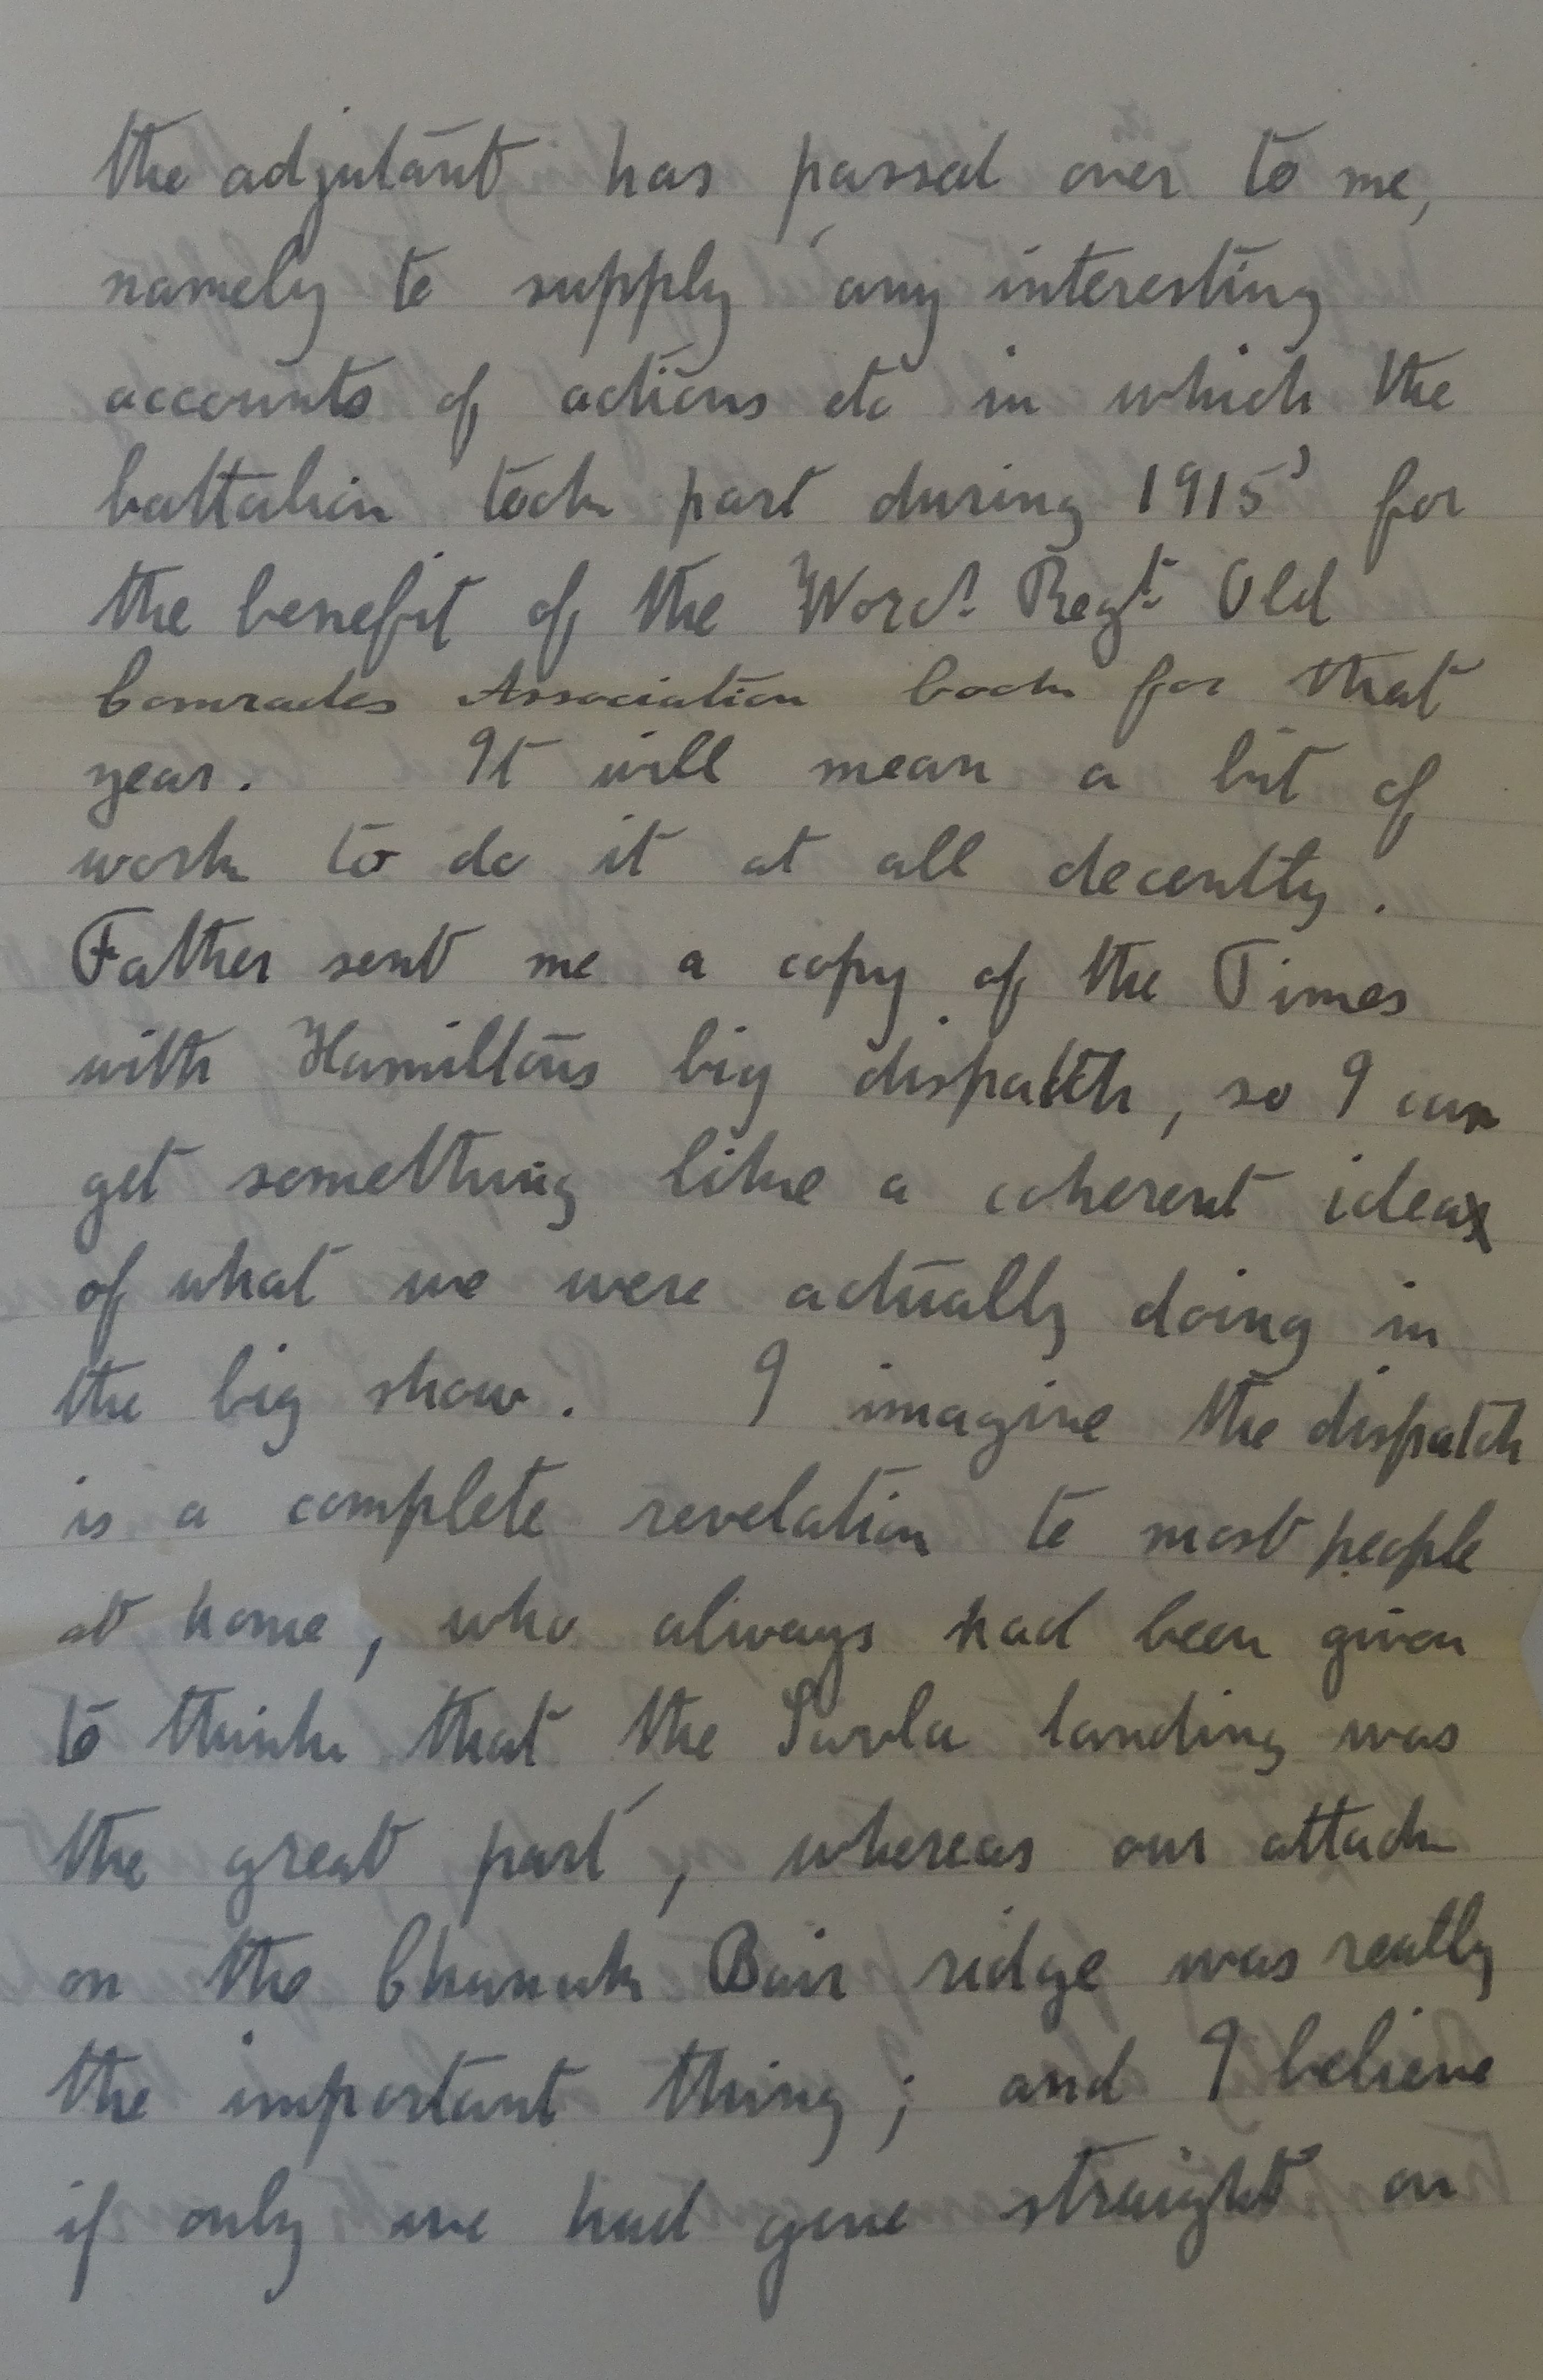 the adjutant has passed over to me,
namely to supply any interesting
accounts of actions etc in which the
battalion took part during 1915' for
the benefit of the Worc: Regt. Old
Comrades Association book for that
year. It will mean a bit of
work to do it at all decently.
Father sent me a copy of the Times
with Hamiltons big dispatch, so I can
get something like a coherent idea
of what we were actually doing in
the big show. I imagine the dispatch
is a complete revelation to most people
at home, who always had been given
to think that the Suvla landing was
the great part, whereas our attack
on the Chunuk Bair ridge was really
the important thing; and I believe
if only we had gone straight on